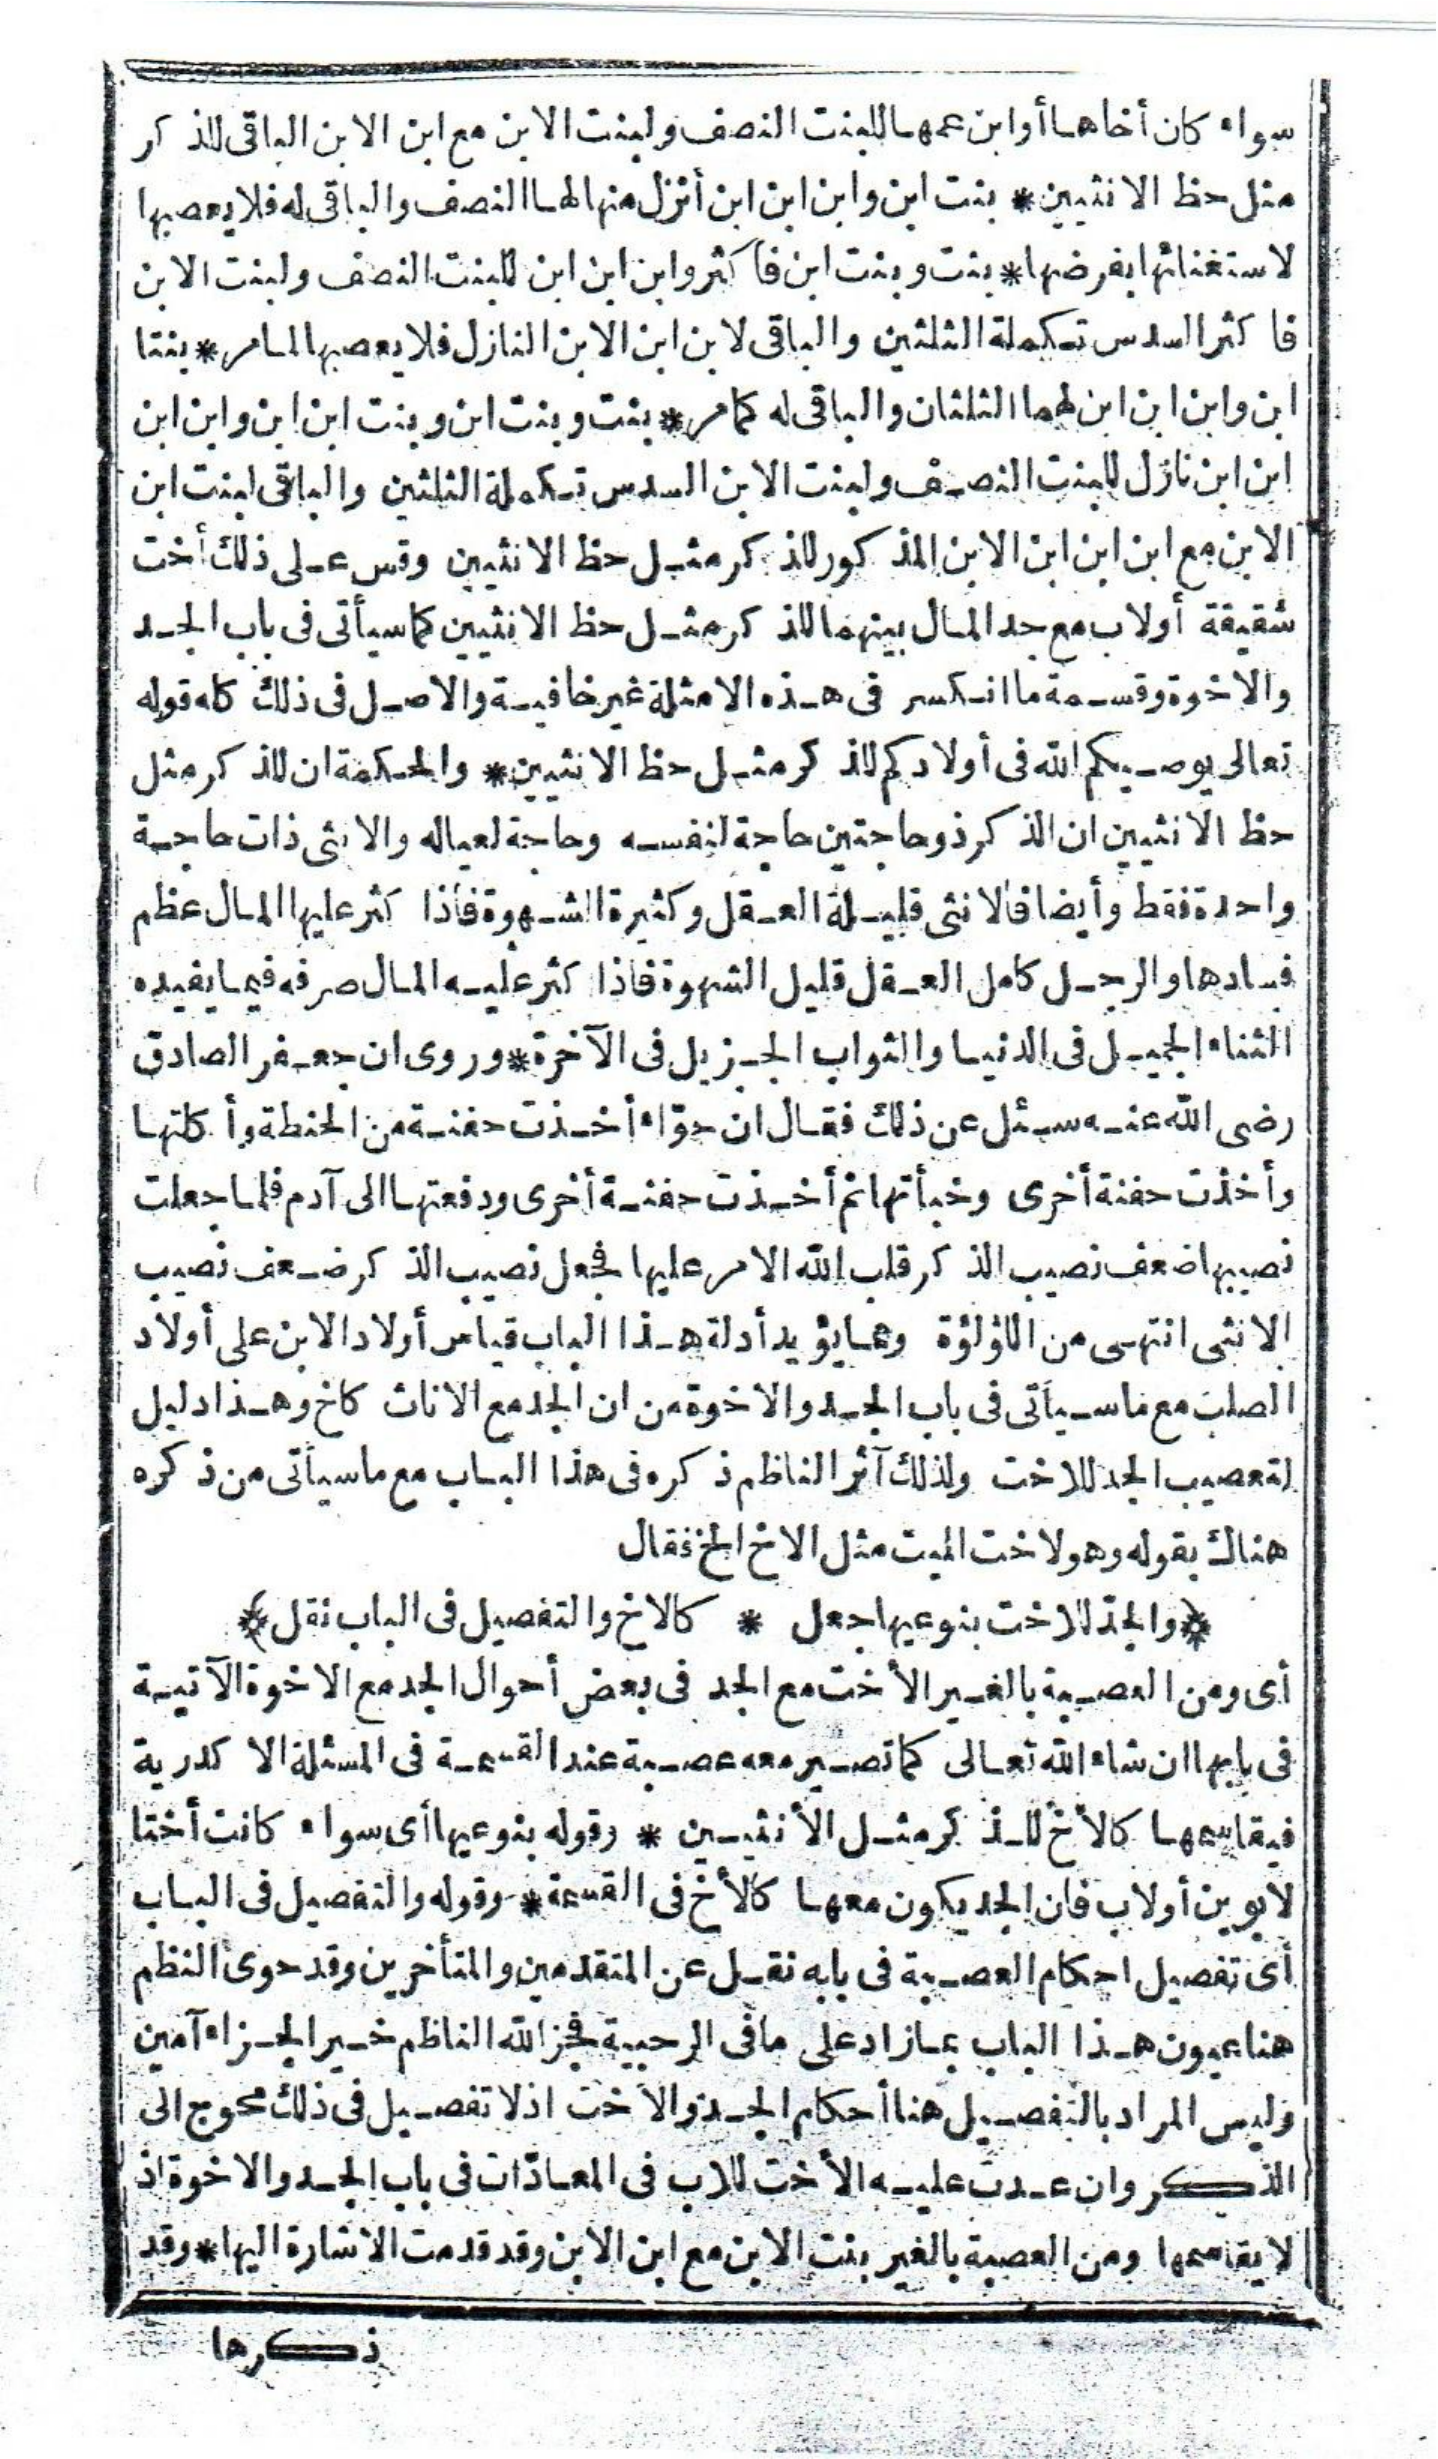 سواء كان أخاها أو ابن عمها للبنت النصف ولبنت الابن مع ابن الابن الباقى للذكر
مثل حظ الانثيين * بنت ابن وابن ابن ابن أنزل منها لها النصف والباقى له فلا يعصبها
لاستغنائها بفرضها * بنت وبنت ابن فأكثر وابن ابن ابن للبنت النصف ولبنت الابن
فاكثر السدس تكملة الثلثين والباقى لابن ابن الابن النازل فلا يعصبها لما مر * بنتا
ابن وابن ابن ابن لهما الثلثان والباقى له كما مر * بنت وبنت ابن وبنت ابن ابن وابن ابن
ابن ابن نازل للبنت النصف ولبنت الابن السدس تكملة الثلثين والباقى لبنت ابن
الابن مع ابن ابن ابن الابن المذكور للذكر مثل حظ الانثيين وقس على ذلك أخت
شقيقة أولاب مع جد المال بينهما للذكر مثل حظ الانثيين كما سيأتى فى باب الجد
والاخوة وقسمة ما انكسر فى هذه الامثلة غير خافية والاصل فى ذلك كله قوله
تعالى يوصيكم الله فى أولادكم للذكر مثل حظ الانثيين * والحكمة ان للذكر مثل
حظ الانثيين ان الذكر ذو حاجتين حاجة لنفسه وحاجة لعياله والانثى ذات حاجة
واحدة فقط وأيضا فالانثى قليلة العقل وكثيرة الشهوة فاذا كثر عليها المال عظم
فسادها والرجل كامل العقل قليل الشهوة فاذا كثر عليه المال صرفه فيما يفيده
الثناء الجميل فى الدنيا والثواب الجزيل فى الآخرة * وروى ان جعفر الصادق
رضى الله عنه سئل عن ذلك فقال ان حوّاء أخذت حفنة من الحنطة وأكلتها
وأخذت حفنة أخرى وخبأتها ثم أخذت حفنة أخرى ودفعتها الى آدم فلما جعلت
نصيبها ضعف نصيب الذكر قلب الله الامر عليها فجعل نصيب الذكر ضعف نصيب
الانثى انتهى من اللؤلؤة ومما يؤيد أدلة هذا الباب قياس أولاد الابن على أولاد
الصلب مع ما سيأتى فى باب الجد والاخوة من ان الجد مع الاناث كاخ وهذا دليل
لتعصيب الجد للاخت ولذلك آثر الناظم ذكره فى هذا الباب مع ما سيأتى من ذكره
هناك بقوله وهو لاخت الميت مثل الاخ الخ فقال
﴿والجدّ للاخت بنوعيها جعل * كالاخ والتفصيل فى الباب نقل﴾
أى ومن العصبة بالغير الأخت مع الجد فى بعض أحوال الجد مع الاخوة الآتية
فى بابها ان شاء الله تعالى كما تصير معه عصبة عند القسمة فى المسئلة الاكدرية
فيقاسمها كالأخ للذكر مثل الأنثيين * وقوله بنوعيها أى سواء كانت أختا
لابوين أولاب فان الجد يكون معها كالأخ فى القسمة * وقوله والتفصيل فى الباب
أى تفصيل احكام العصبة فى بابه نقل عن المتقدمين والمتأخرين وقد حوى النظم
هنا عيون هذا الباب بما زاد على ما فى الرحبية فجز الله الناظم خير الجزاء آمين
وليس المراد بالتفصيل هنا أحكام الجد والأخت اذ لا تفصيل فى ذلك محوج الى
الذكر وان عدت عليه الأخت للاب فى المعادّات فى باب الجد والاخوة اذ
لا يقاسمها ومن العصبة بالغير بنت الابن مع ابن الابن وقد قدمت الاشارة اليها * وقد
ذكرها